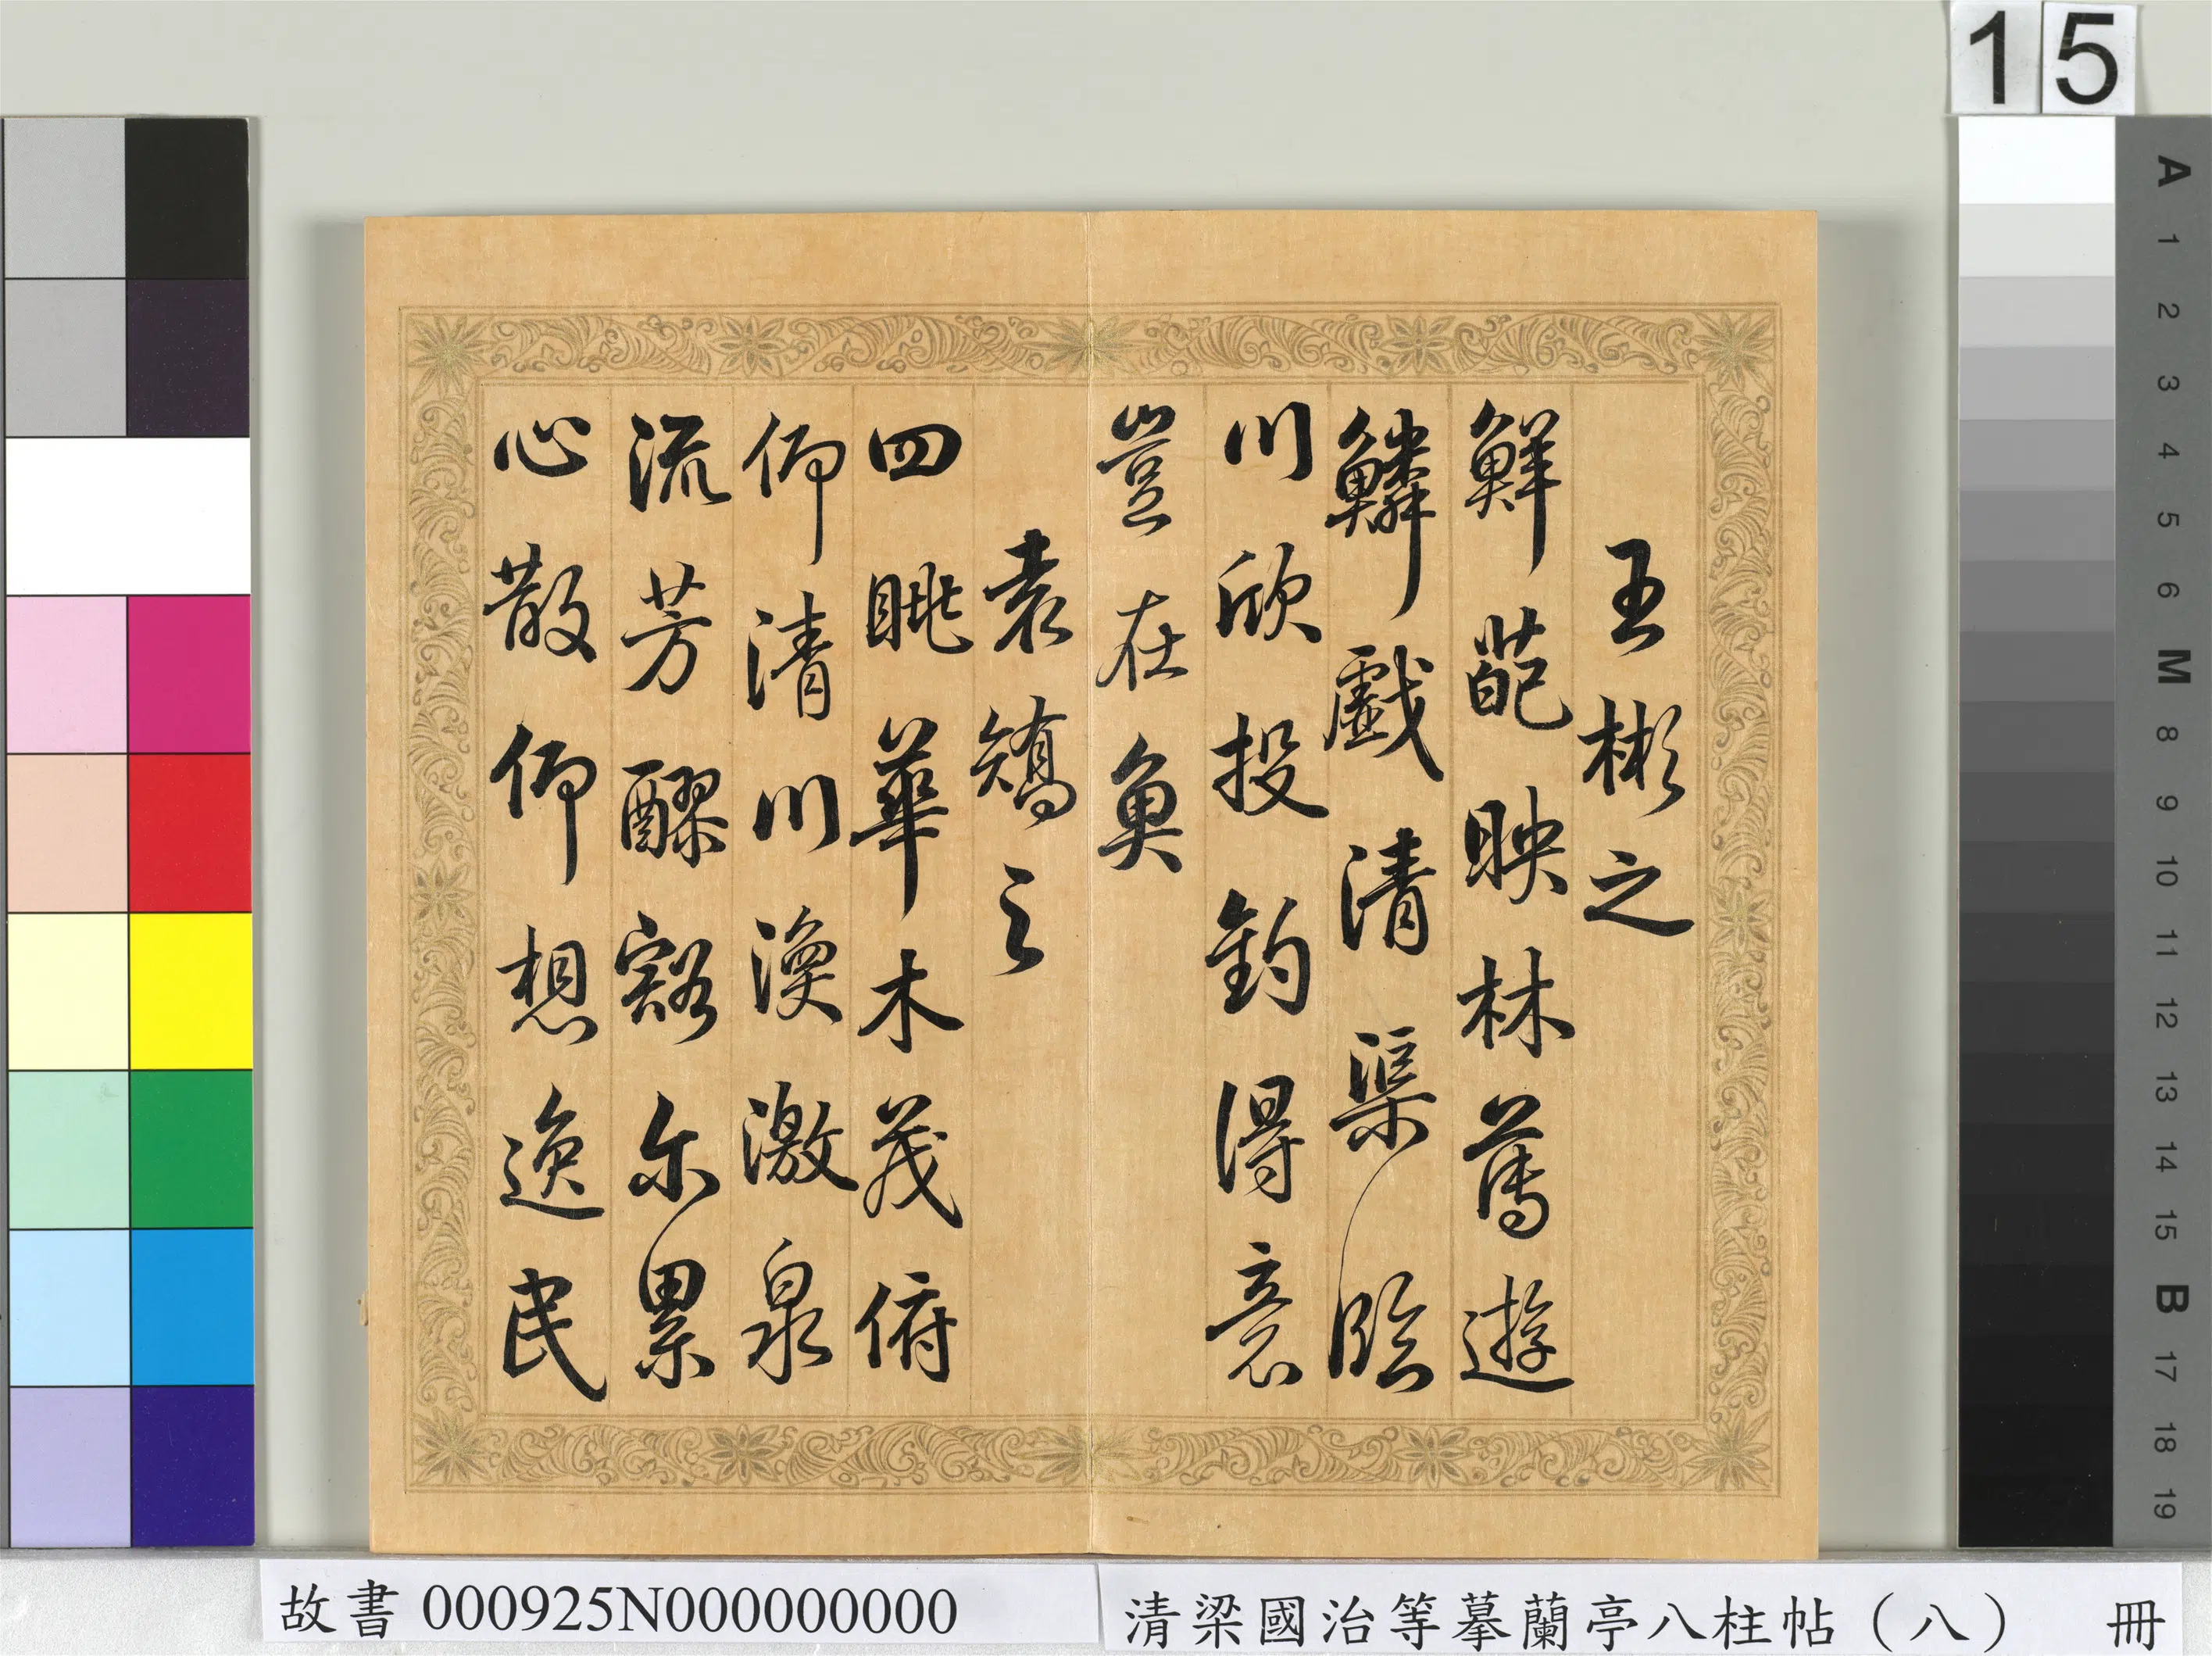 15
王彬之
鮮葩映林薄遊
鱗戲清渠臨
川欣投釣得意
豈在魚
袁矯之
四眺華木茂俯
仰清川渙激泉
流芳醪豁尔累
心散仰想逸民
A 1 2 3 4 5 6 M 8 9 10 11 12 13 14 15 B 17 18 19
故書 000925N000000000
清梁國治等摹蘭亭八柱帖（八） 冊